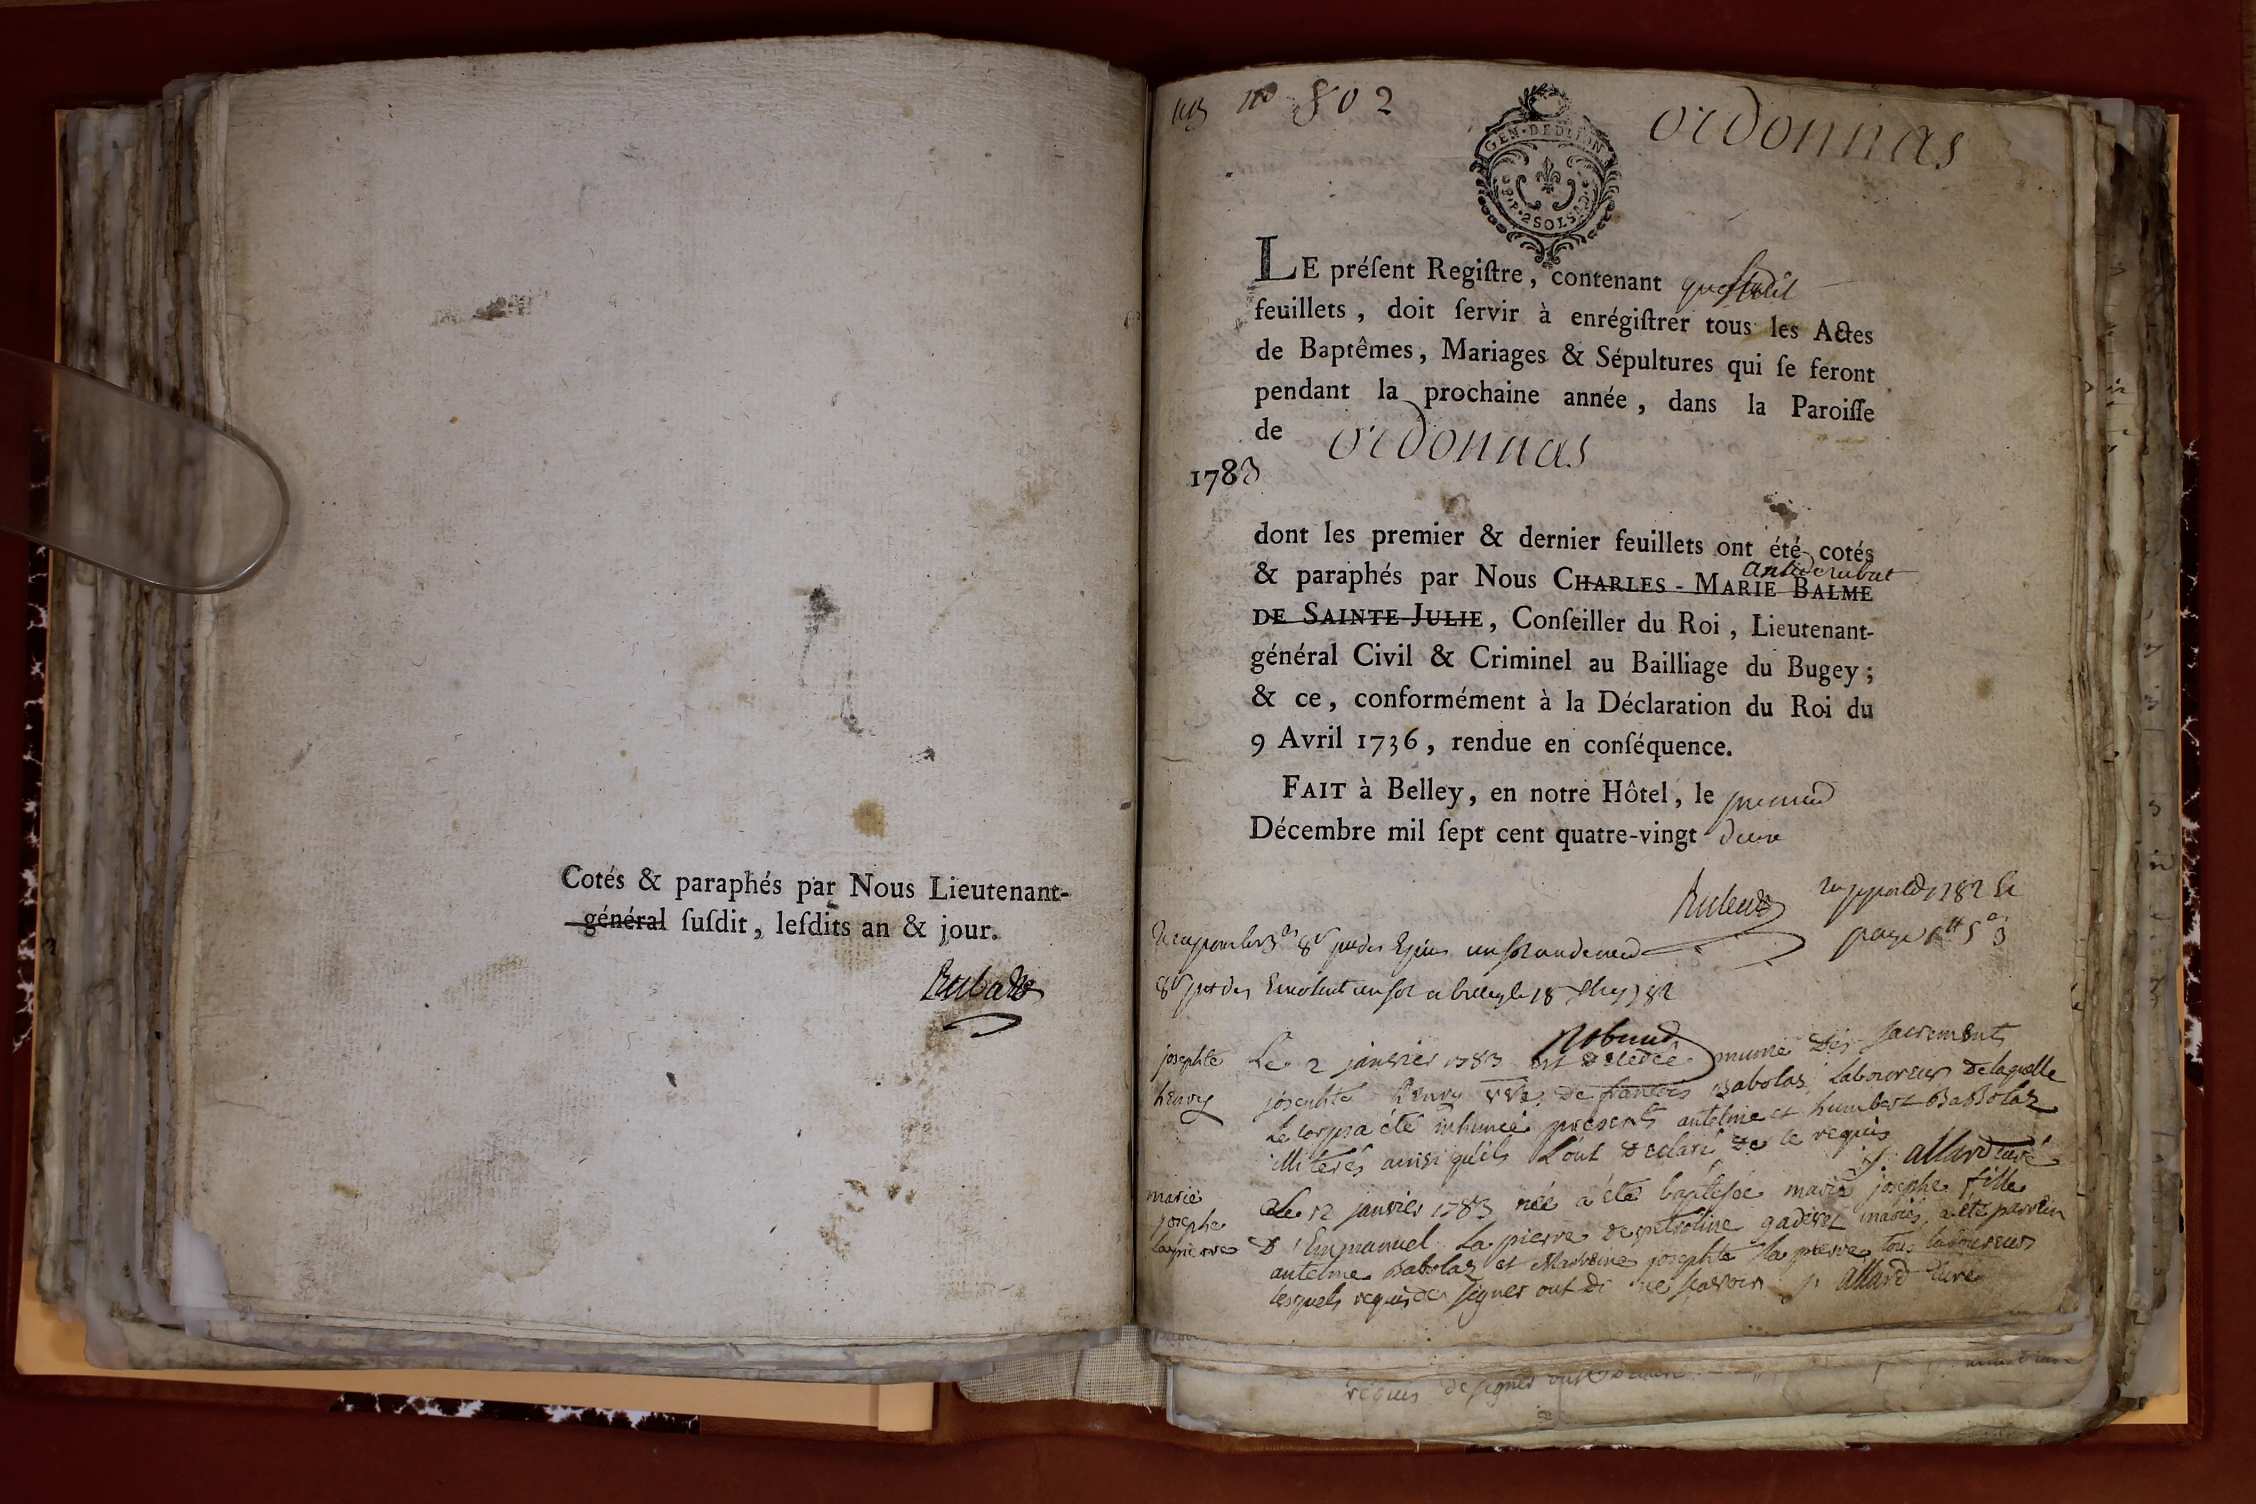 Cotés & paraphés par Nous Lieutenant-
général ſuſdit, leſdits an & jour.
nº 802
ordonnas
GEN. DE DIJON
2 SOLS
LE préſent Regiſtre, contenant
feuillets, doit ſervir à enrégiſtrer tous les Actes
de Baptêmes, Mariages & Sépultures qui ſe feront
pendant la prochaine année, dans la Paroiſſe
de ordonnas
1783
dont les premier & dernier feuillets ont été cotés
& paraphés par Nous CHARLES-MARIE BALME
DE SAINTE-JULIE, Conſeiller du Roi, Lieutenant-
général Civil & Criminel au Bailliage du Bugey;
& ce, conformément à la Déclaration du Roi du
9 Avril 1736, rendue en conſéquence.
FAIT à Belley, en notre Hôtel, le premier
Décembre mil ſept cent quatre-vingt deux
josephte
henry
Le 2 janvier 1783 est décédée munie des sacrements
josephte henry vve de francois Babolaz laboureur de laquelle
le corps a été inhumé présents antelme et humbert Babolaz
illiterés ainsi qu'ils l'ont declaré de ce requis
j. allard curé
marie
josephe
lapierre
Le 12 janvier 1783 née a été baptisée marie josephe fille
d'Emmanuel La pierre de petroline gaderet mariés a été parrein
antelme Babolaz et Marreine josephte la pierre tous laboureurs
lesquels requis de signer ont di ne scavoir j. allard curé
requis de signer